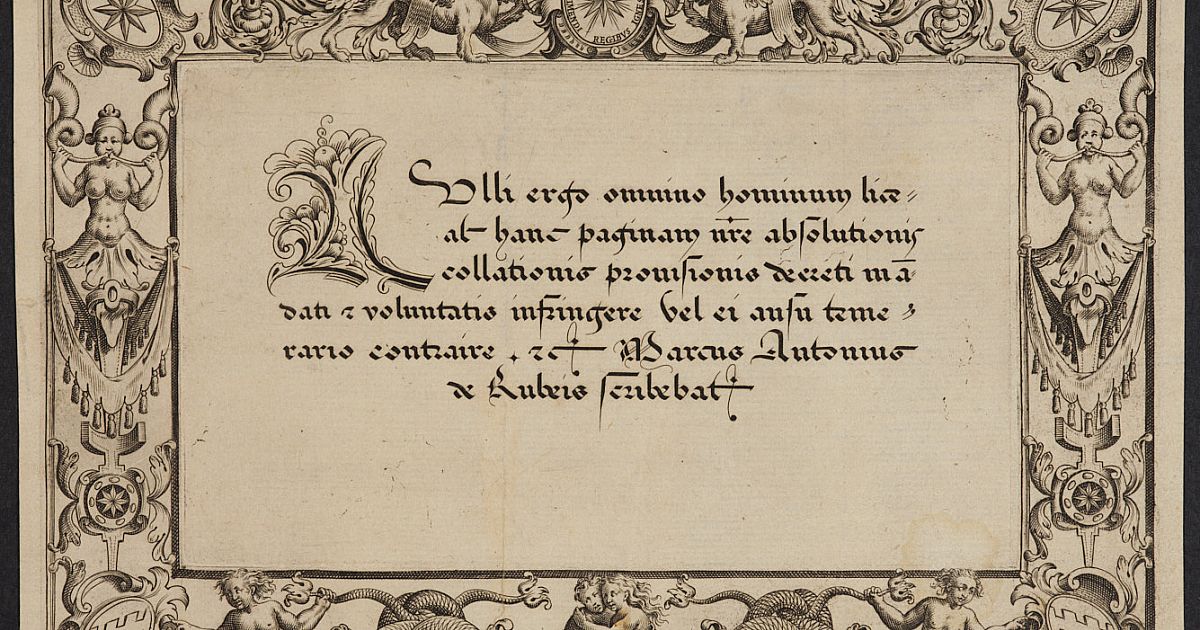 REGIBVS
NVlli ergo omnino hominum lice-
at hanc paginam nr̃e absolutionis
collationis prouisionis decreti mā-
dati ⁊ voluntatis infringere vel ei ausu teme-
rario contraire. ⁊c Marcus Antonius
de Rubeis scribebat